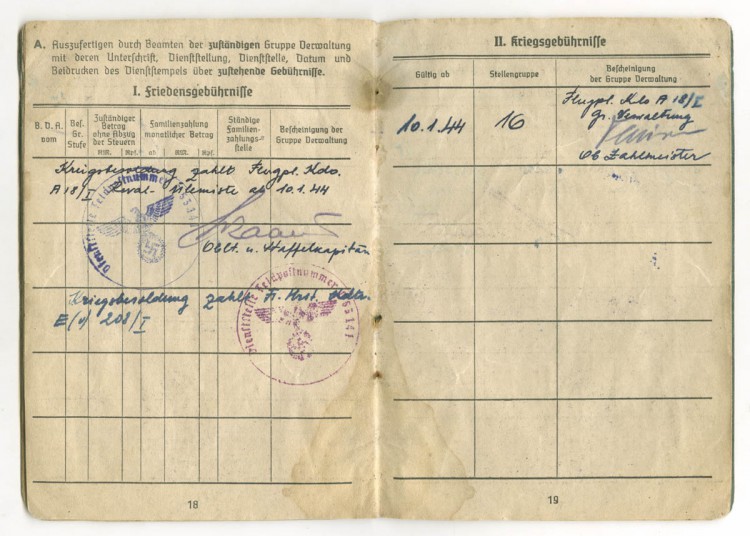 A. Auszufertigen durch Beamten der zuständigen Gruppe Verwaltung
mit deren Unterschrift, Dienststellung, Dienststelle, Datum und
Beidrucken des Dienststempels über zustehende Gebührnisse.
I. Friedensgebührnisse
B. D. A. vom
Bes. Gr. Stufe
Zuständiger Betrag ohne Abzug der Steuern
RM. Rpf.
Familienzahlung monatlicher Betrag
ab RM. Rpf.
Ständige Familien-zahlungs-stelle
Bescheinigung der Gruppe Verwaltung
Kriegsbesoldung zahlt Flugpl. Kdo.
A 18/I ab 10.1.44
Dienststelle Feldpostnummer
Oblt. u. Staffelkapitän
Kriegsbesoldung zahlt
E(v) 208/I
Dienststelle Feldpostnummer
18
II. Kriegsgebührnisse
Gültig ab
Stellengruppe
Bescheinigung
der Gruppe Verwaltung
10.1.44
16
Flugpl. Kdo A 18/I
Gr. Verwaltung
Ob Zahlmeister
19